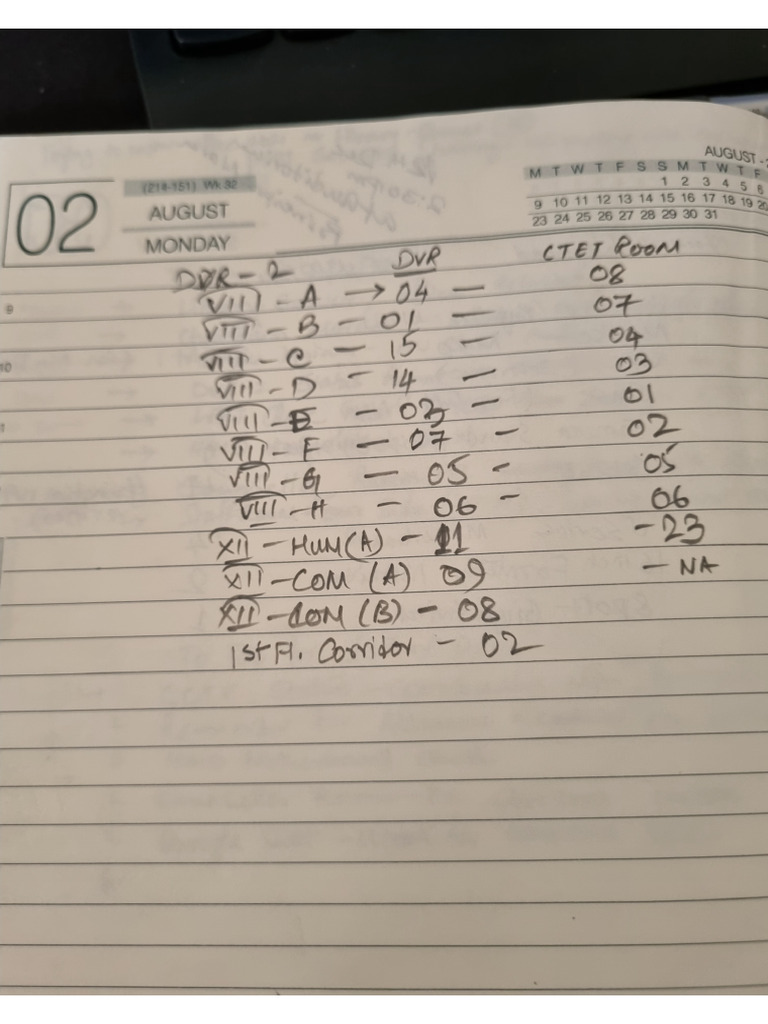 AUGUST - 2
M T W T F S S M T W T F
1 2 3 4 5 6
9 10 11 12 13 14 15 16 17 18 19 20
23 24 25 26 27 28 29 30 31
02
(214-151) Wk 32
AUGUST
MONDAY
DVR - 2 DVR CTET ROOM
VIII - A → 04 — 08
VIII - B - 01 — 07
VIII - C — 15 04
VIII - D - 14 — 03
VIII - E - 03 — 01
VIII - F — 07 - 02
VIII - G — 05 - 05
VIII - H - 06 - 06
XII - HUM(A) - 11 - 23
XII - COM (A) 09 - NA
XII - COM (B) - 08
1st Fl. Corridor - 02
9
10